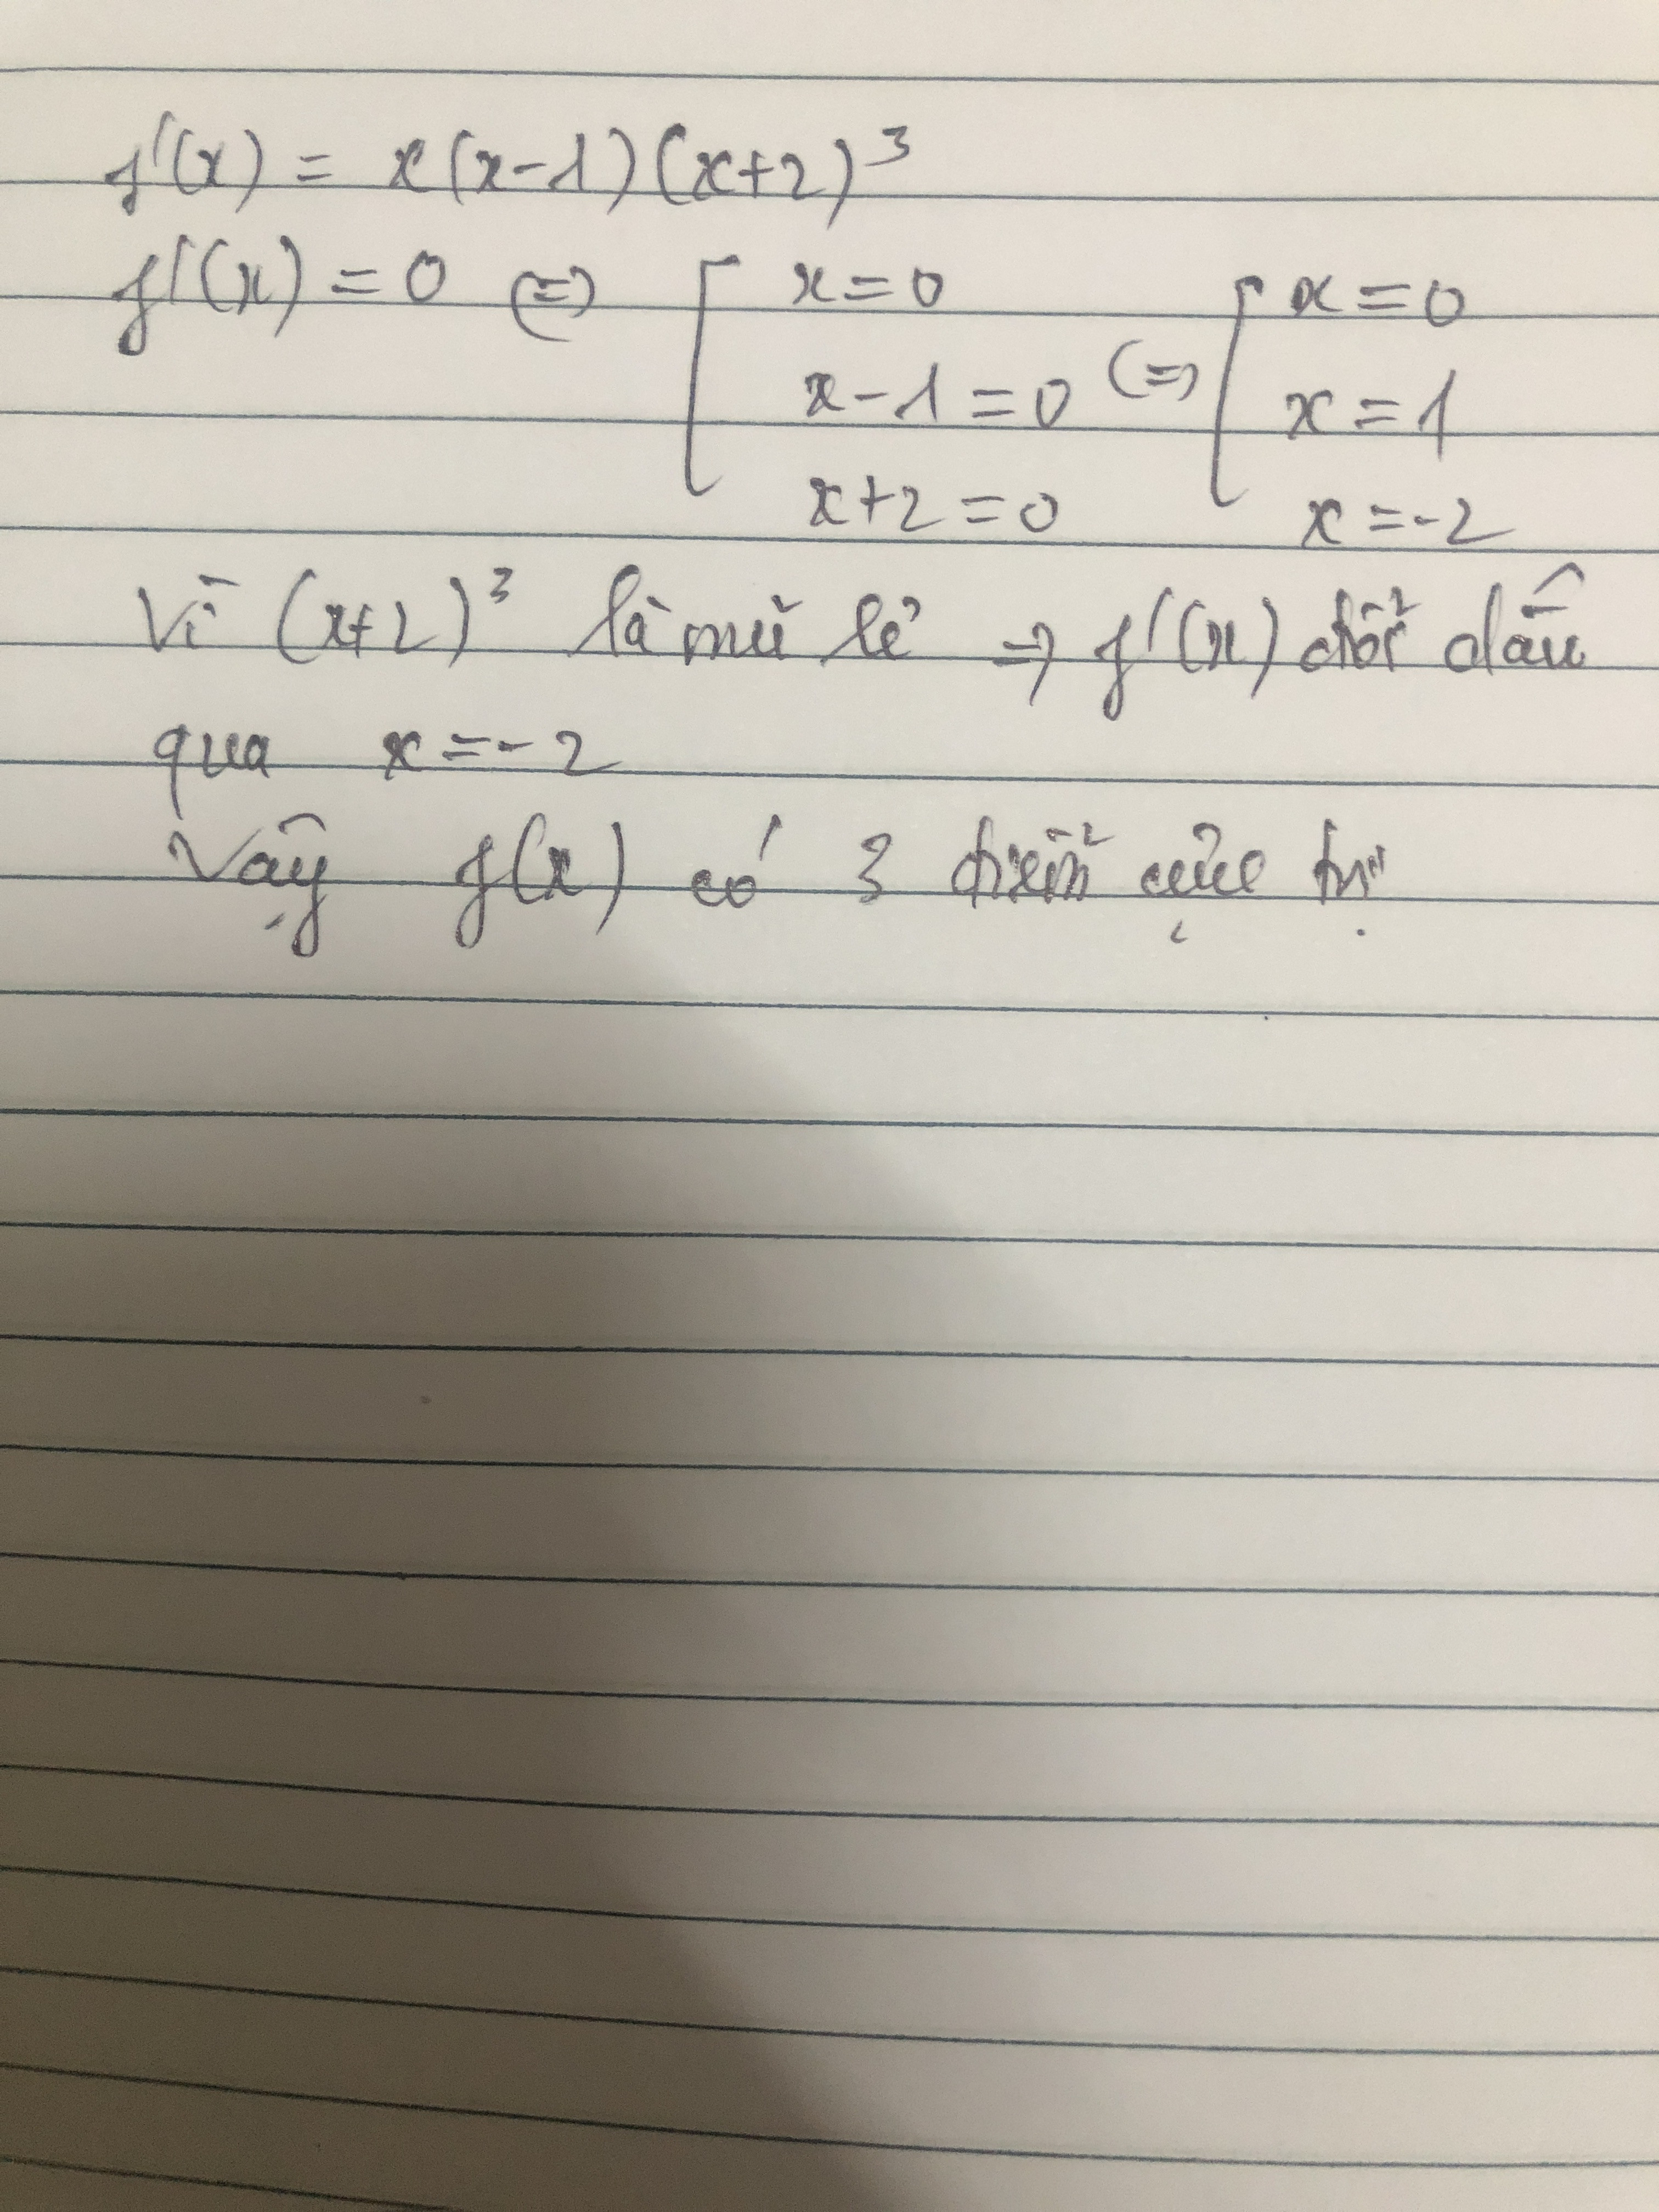 f'(x) = x(x-1)(x+2)³
f'(x) = 0 (=) [ x=0 [ x=0
x-1=0 (=) x=1
x+2=0 x=-2
Vì (x+2)³ là mũ lẻ => f'(x) đổi dấu
qua x=-2
Vậy f(x) có 3 điểm cực trị